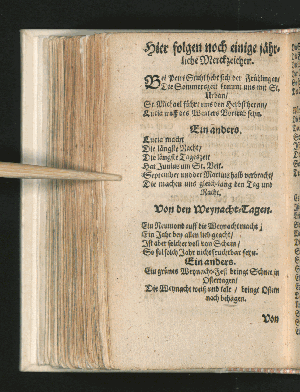 Hier folgen noch einige jähr-
liche Merckzeichen.
Bei Petri Stuhl hebt sich der Frühling an/
Die Sommerszeit kommt uns mit St.
Urban/
St. Michael führt uns den Herbst herein/
Lucia muß des Winters Vorbild seyn.
Ein anders.
Lucia macht
Die längste Nacht/
Die längste Tageszeit
Hat Junius um St. Veit.
September und der Martius halb verbracht/
Die machen uns gleich lang den Tag und
Nacht.
Von den Weynacht-Tagen.
Ein Neumond auff die Weynacht macht
Ein Jahr bey allen lieb geacht/
Ist aber solcher voll von Schein/
So soll solch Jahr nicht fruchtbar seyn.
Ein anders.
Ein grünes Weynacht-Fest bringt Schnee in
Ostertagen/
Die Weynacht weiß und kalt/ bringt Ostern
nach behagen.
Von